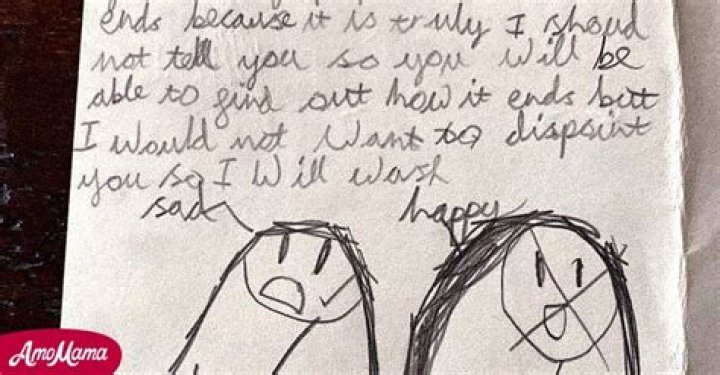 ends because it is truly I shoud
not tell you so you will be
able to find out how it ends but
I would not want to dispoint
you so I will wash
sad
happy
AmoMama